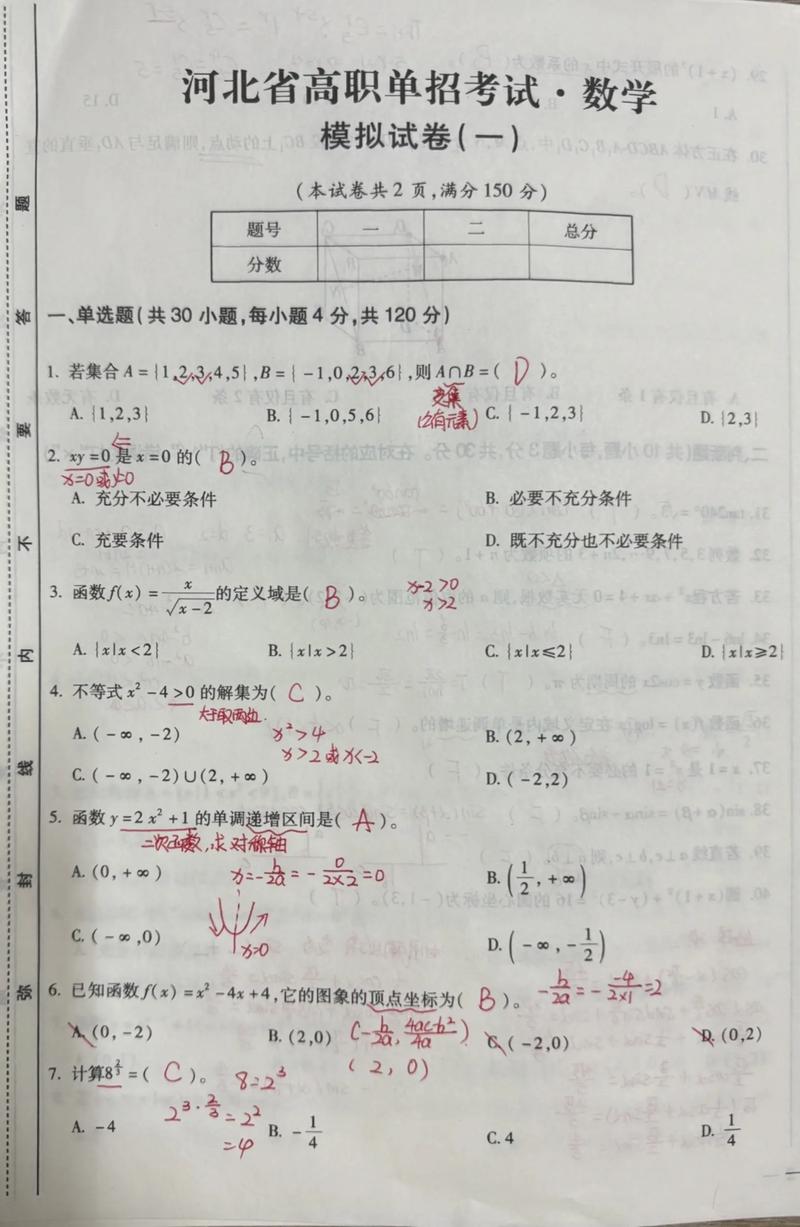 河北省高职单招考试·数学
模拟试卷(一)
(本试卷共2页,满分150分)
题号 一 二 总分
分数
一、单选题(共30小题,每小题4分,共120分)
1. 若集合A={1,2,3,4,5},B={-1,0,2,3,6},则A∩B=( D )。
交集
(公有元素)
A. {1,2,3} B. {-1,0,5,6} C. {-1,2,3} D. {2,3}
2. xy=0是x=0的( B )。
x=0或y=0
A. 充分不必要条件 B. 必要不充分条件
C. 充要条件 D. 既不充分也不必要条件
3. 函数f(x)=x/√(x-2)的定义域是( B )。 x-2>0
x>2
A. {x|x<2} B. {x|x>2} C. {x|x≤2} D. {x|x≥2}
4. 不等式x²-4>0的解集为( C )。
大于取两边
A. (-∞,-2) x²>4 B. (2,+∞)
x>2或x<-2
C. (-∞,-2)∪(2,+∞) D. (-2,2)
5. 函数y=2x²+1的单调递增区间是( A )。
二次函数,求对称轴
A. (0,+∞) x=-b/2a=-0/2×2=0 B. (1/2,+∞)
C. (-∞,0) x=0 D. (-∞,-1/2)
6. 已知函数f(x)=x²-4x+4,它的图象的顶点坐标为( B )。 -b/2a=--4/2×1=2
A. (0,-2) B. (2,0) (-b/2a,4ac-b²/4a) C. (-2,0) D. (0,2)
(2,0)
7. 计算8^(2/3)=( C )。 8=2³
2^(3·2/3)=2²
=4
A. -4 B. -1/4 C. 4 D. 1/4
题
答
要
不
内
线
封
弥